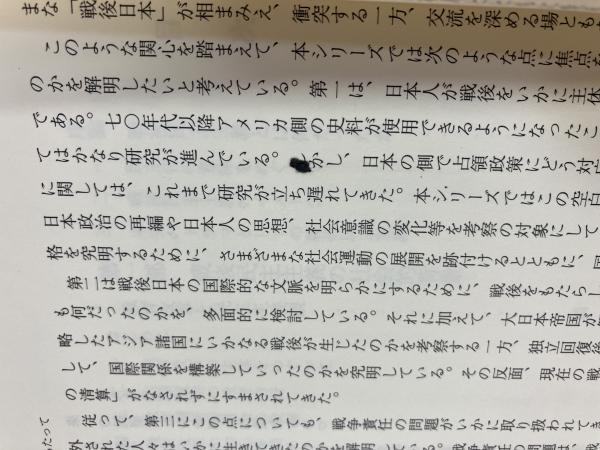 まな「戦後日本」が相まみえ、衝突する一方、交流を深める場とも
このような関心を踏まえて、本シリーズでは次のような点に焦点を
のかを解明したいと考えている。第一は、日本人が戦後をいかに主体
である。七〇年代以降アメリカ側の史料が使用できるようになったこ
てはかなり研究が進んでいる。かし、日本の側で占領政策にどう対応
に関しては、これまで研究が立ち遅れてきた。本シリーズではこの空白
日本政治の再編や日本人の思想、社会意識の変化等を考察の対象にして
格を究明するために、さまざまな社会運動の展開を跡付けるとともに、
第二は戦後日本の国際的な文脈を明らかにするために、戦後をもたらし
も何だったのかを、多面的に検討している。それに加えて、大日本帝国が
略したアジア諸国にいかなる戦後が生じたのかを考察する一方、独立回復後
して、国際関係を構築していったのかを究明している。その反面、現在の戦
の清算」がなされずにすまされてきた。
従って、第三にこの点についても、戦争責任の問題がいかに取り扱われてき
外された人々はいかに生きてきたのかを解明している。戦争責任の問題は、
たって